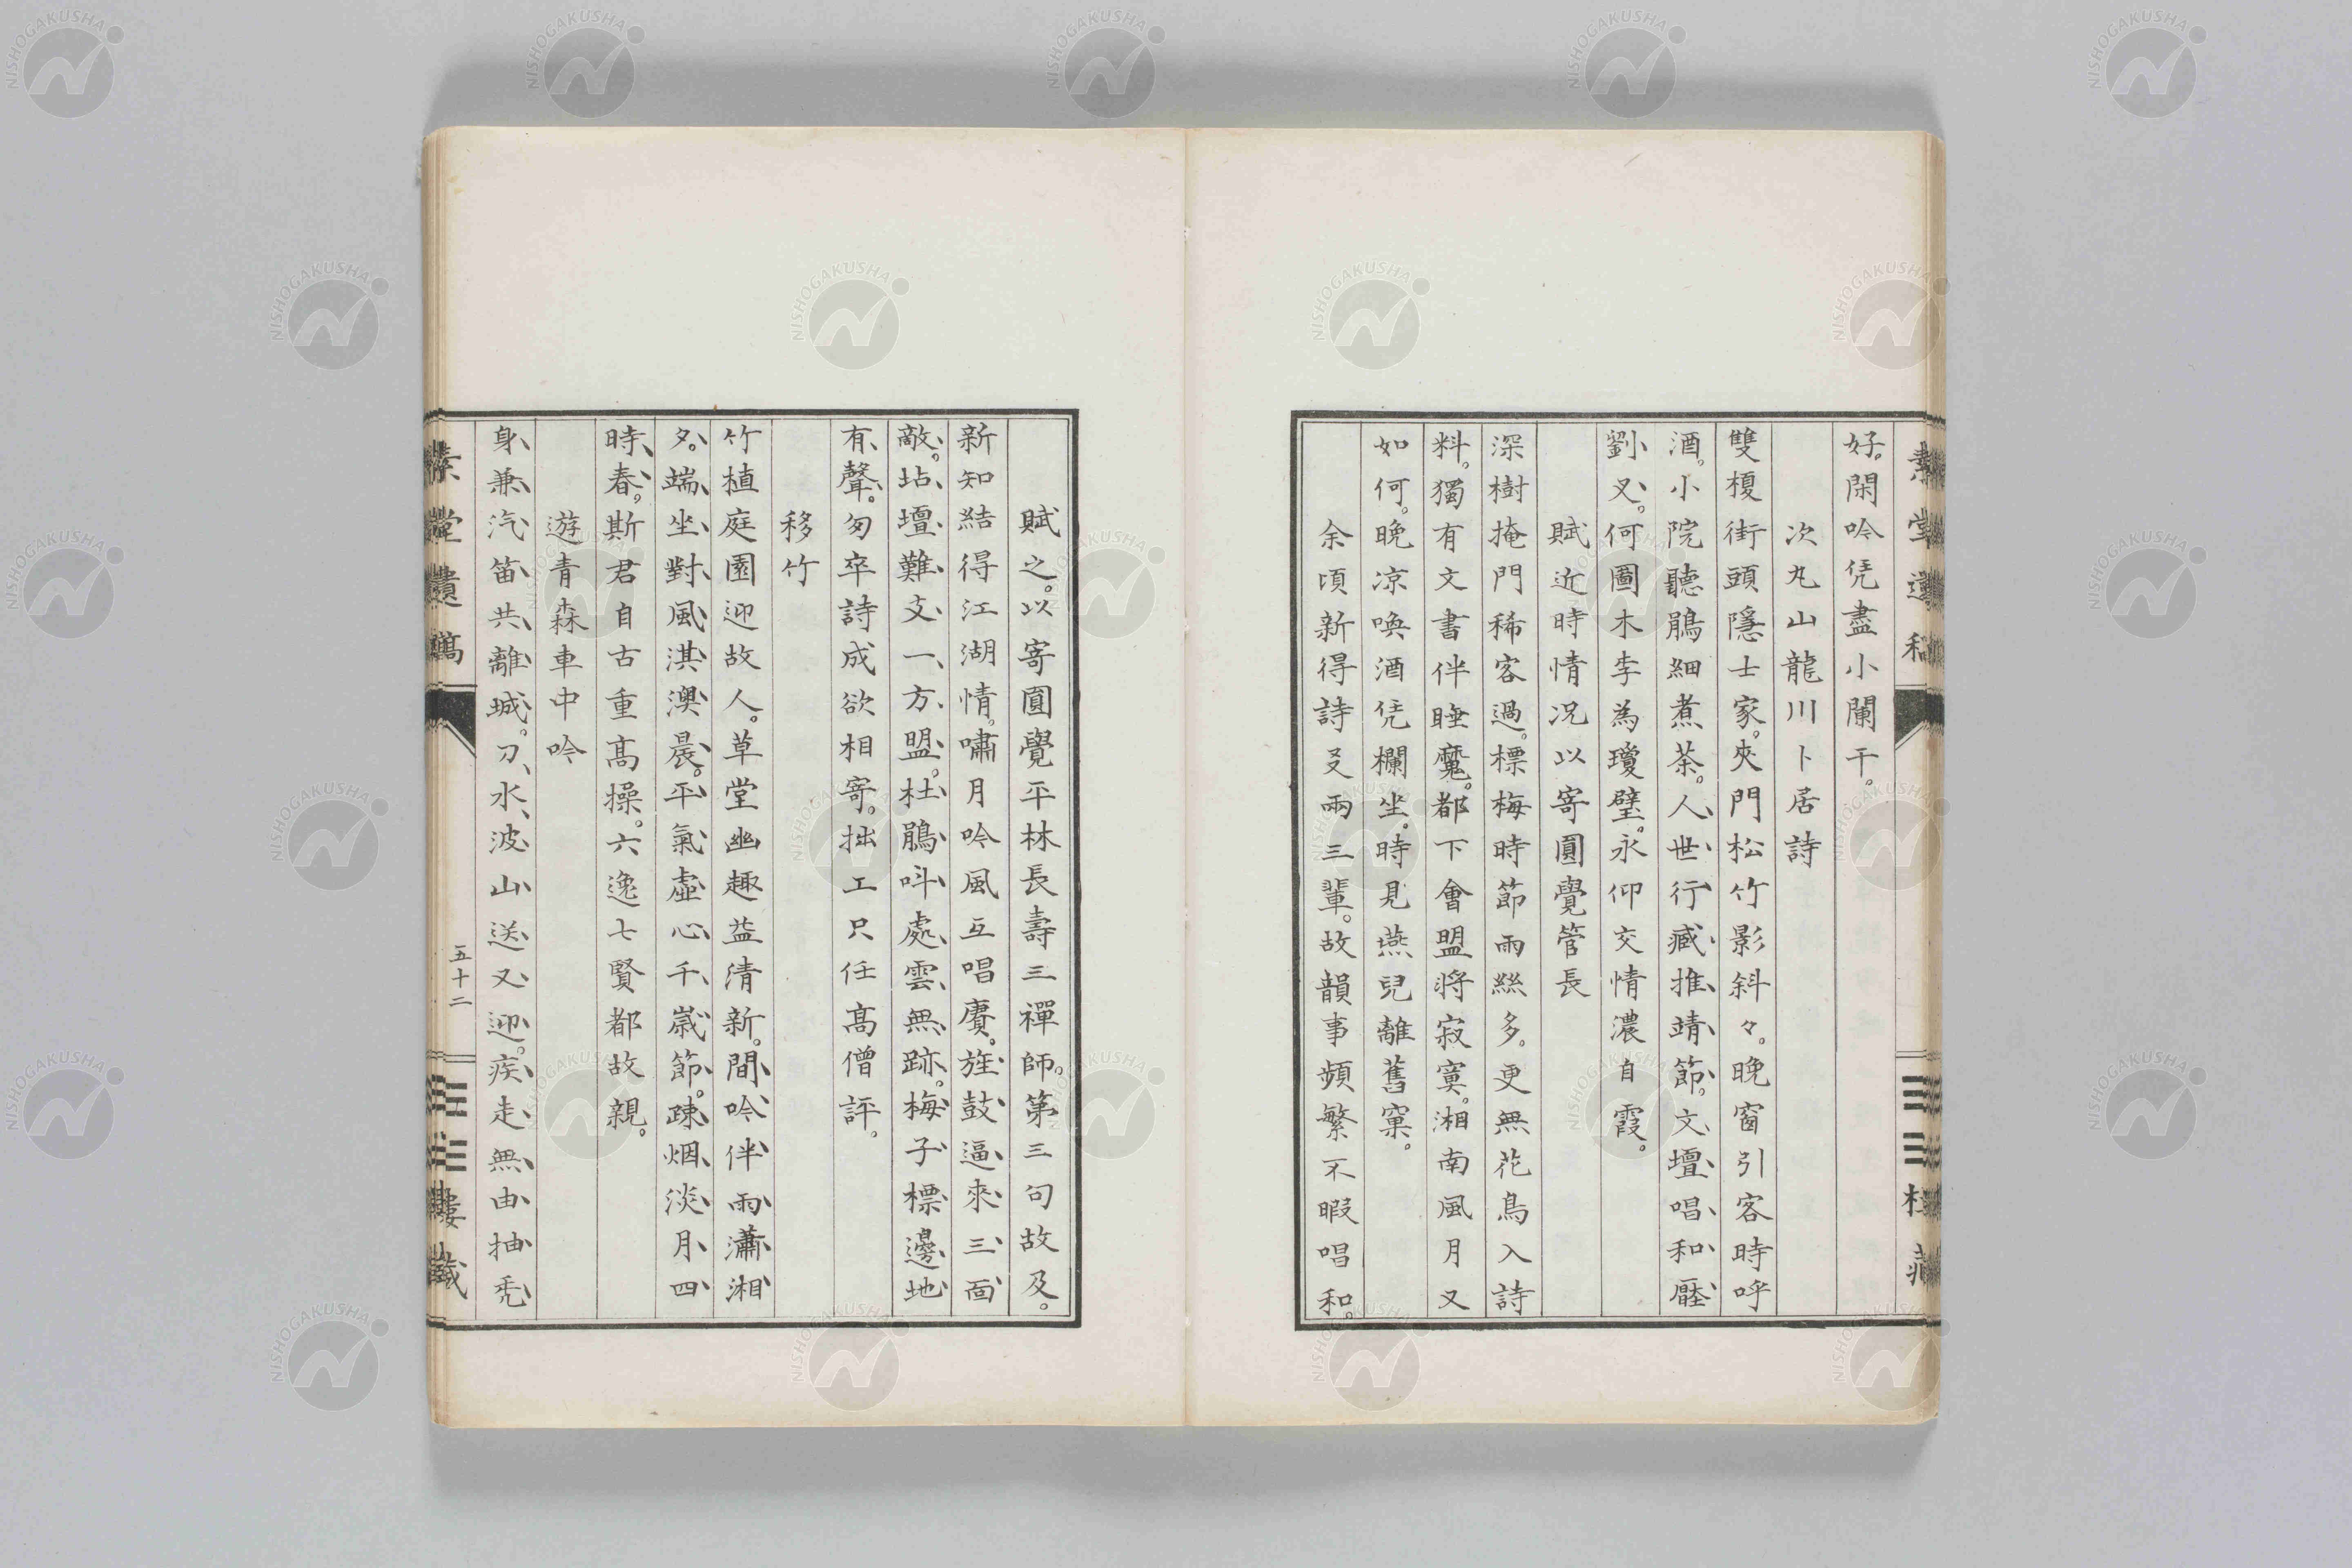 好。閑吟凭盡小闌干。
次丸山龍川卜居詩
雙榎街頭隱士家。夾門松竹影斜々。晚窗引客時呼
酒。小院聽鵑細煮茶。人世行臧推靖節。文壇唱和壓
劉叉。何圖木李為瓊璧。永仰交情濃自霞。
賦近時情況以寄圓覺管長
深樹掩門稀客過。標梅時節雨絲多。更無花鳥入詩
料。獨有文書伴睡魔。都下會盟將寂寞。湘南風月又
如何。晚涼喚酒凭欄坐。時見燕兒離舊窠。
余頃新得詩叟兩三輩。故韻事頻繁不暇唱和。
賦之。以寄圓覺平林長壽三禪師。第三句故及。
新知結得江湖情。嘯月吟風互唱賡。旌鼓逼來三面
敵。坫壇難支一方盟。杜鵑呌處雲無跡。梅子標邊地
有聲。匆卒詩成欲相寄。拙工只任高僧評。
移竹
竹植庭園迎故人。草堂幽趣益清新。間吟伴雨瀟湘
夕。端坐對風淇澳晨。平氣虛心千歲節。疎烟淡月四
時春。斯君自古重高操。六逸七賢都故親。
遊青森車中吟
身兼汽笛共離城。刀水波山送又迎。疾走無由抽禿
素堂遺稿
五十二
NISHOGAKUSHA